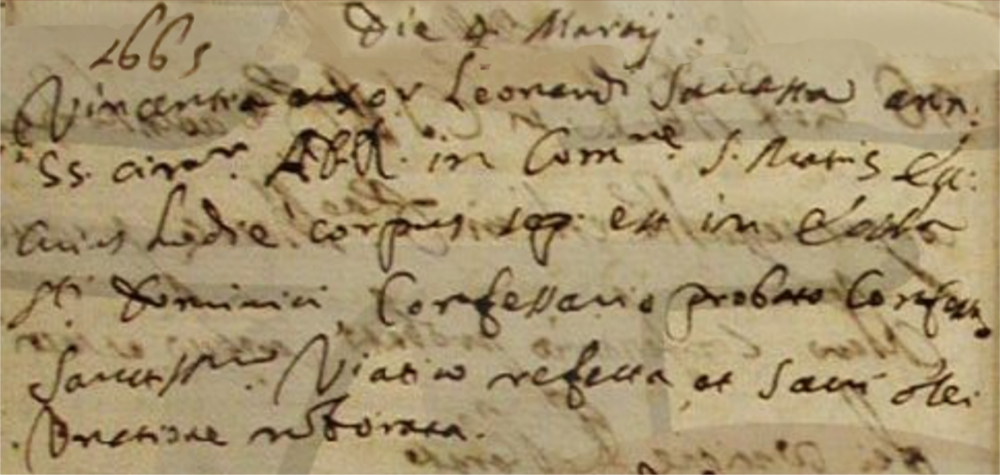 1665
Die 4 Martij.
Vincentia uxor Leonardi ann.
55. circr. in Comne S. Matris Ecc:
cuius hodie corpus sep. est in Eccla
Sti Dominici Confessario probato Confessa
Sanctissmo Viatico refecta et Sacri Olei
Unctione roborata.